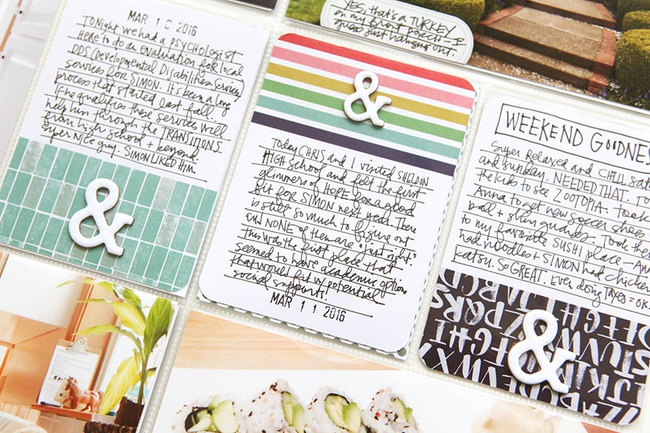 YES, that's a TURKEY
on my front porch
just hanging out.
MAR 1 0 2016
Tonight we had a PSYCHOLOGIST
Here to do an evaluation for local
DDS (Developmental Disabilities Services)
services for SIMON. It's been a long
process that started last fall.
If he qualifies those services will
help him through the TRANSITIONS
from high school + beyond.
super NICE guy. SIMON LIKED HIM.
&
&
Today CHRIS and I visited SHELDON
HIGH School and felt the first
glimmers of HOPE for a good
fit for SIMON next year. There
is still so much to figure out
and NONE of them are "just right"
this was the first place that
seemed to have academic options
that would fit w/ potential
social support.
MAR 1 1 2016
WEEKEND GOODNESS
Super Relaxed and CHILL
and sunday. NEEDED THAT.
the kids to see ZOOTOPIA. Took
Anna to get new soccer shoes
ball + shin guards.
to my favorite SUSHI place - Anna
had noodles + SIMON had chicken
katsu. SO GREAT. Even doing Taxes = OK.
&